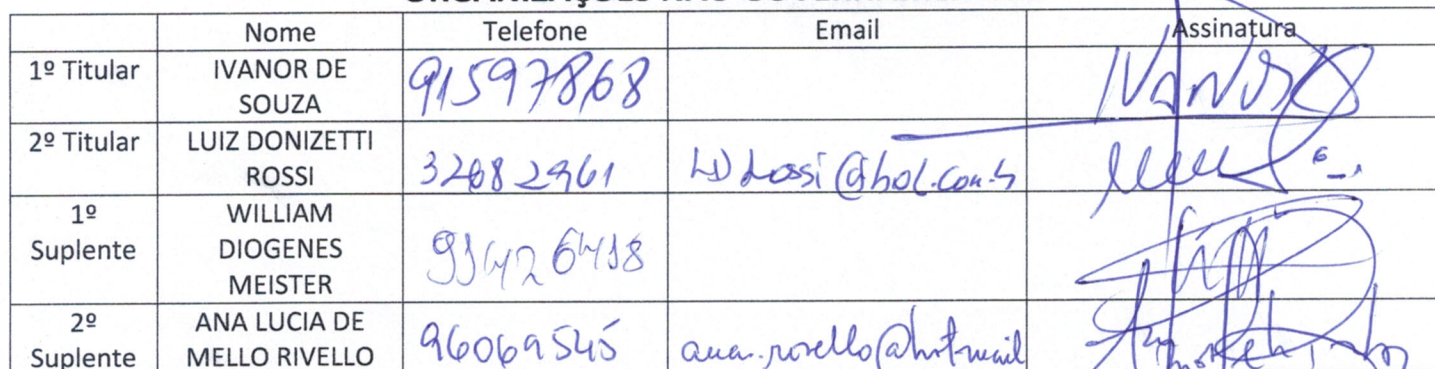 Nome Telefone Email Assinatura
1º Titular IVANOR DE SOUZA 91597868
2º Titular LUIZ DONIZETTI ROSSI 32682961
1º Suplente WILLIAM DIOGENES MEISTER
2º Suplente ANA LUCIA DE MELLO RIVELLO 96069545 ana.rivello@hotmail